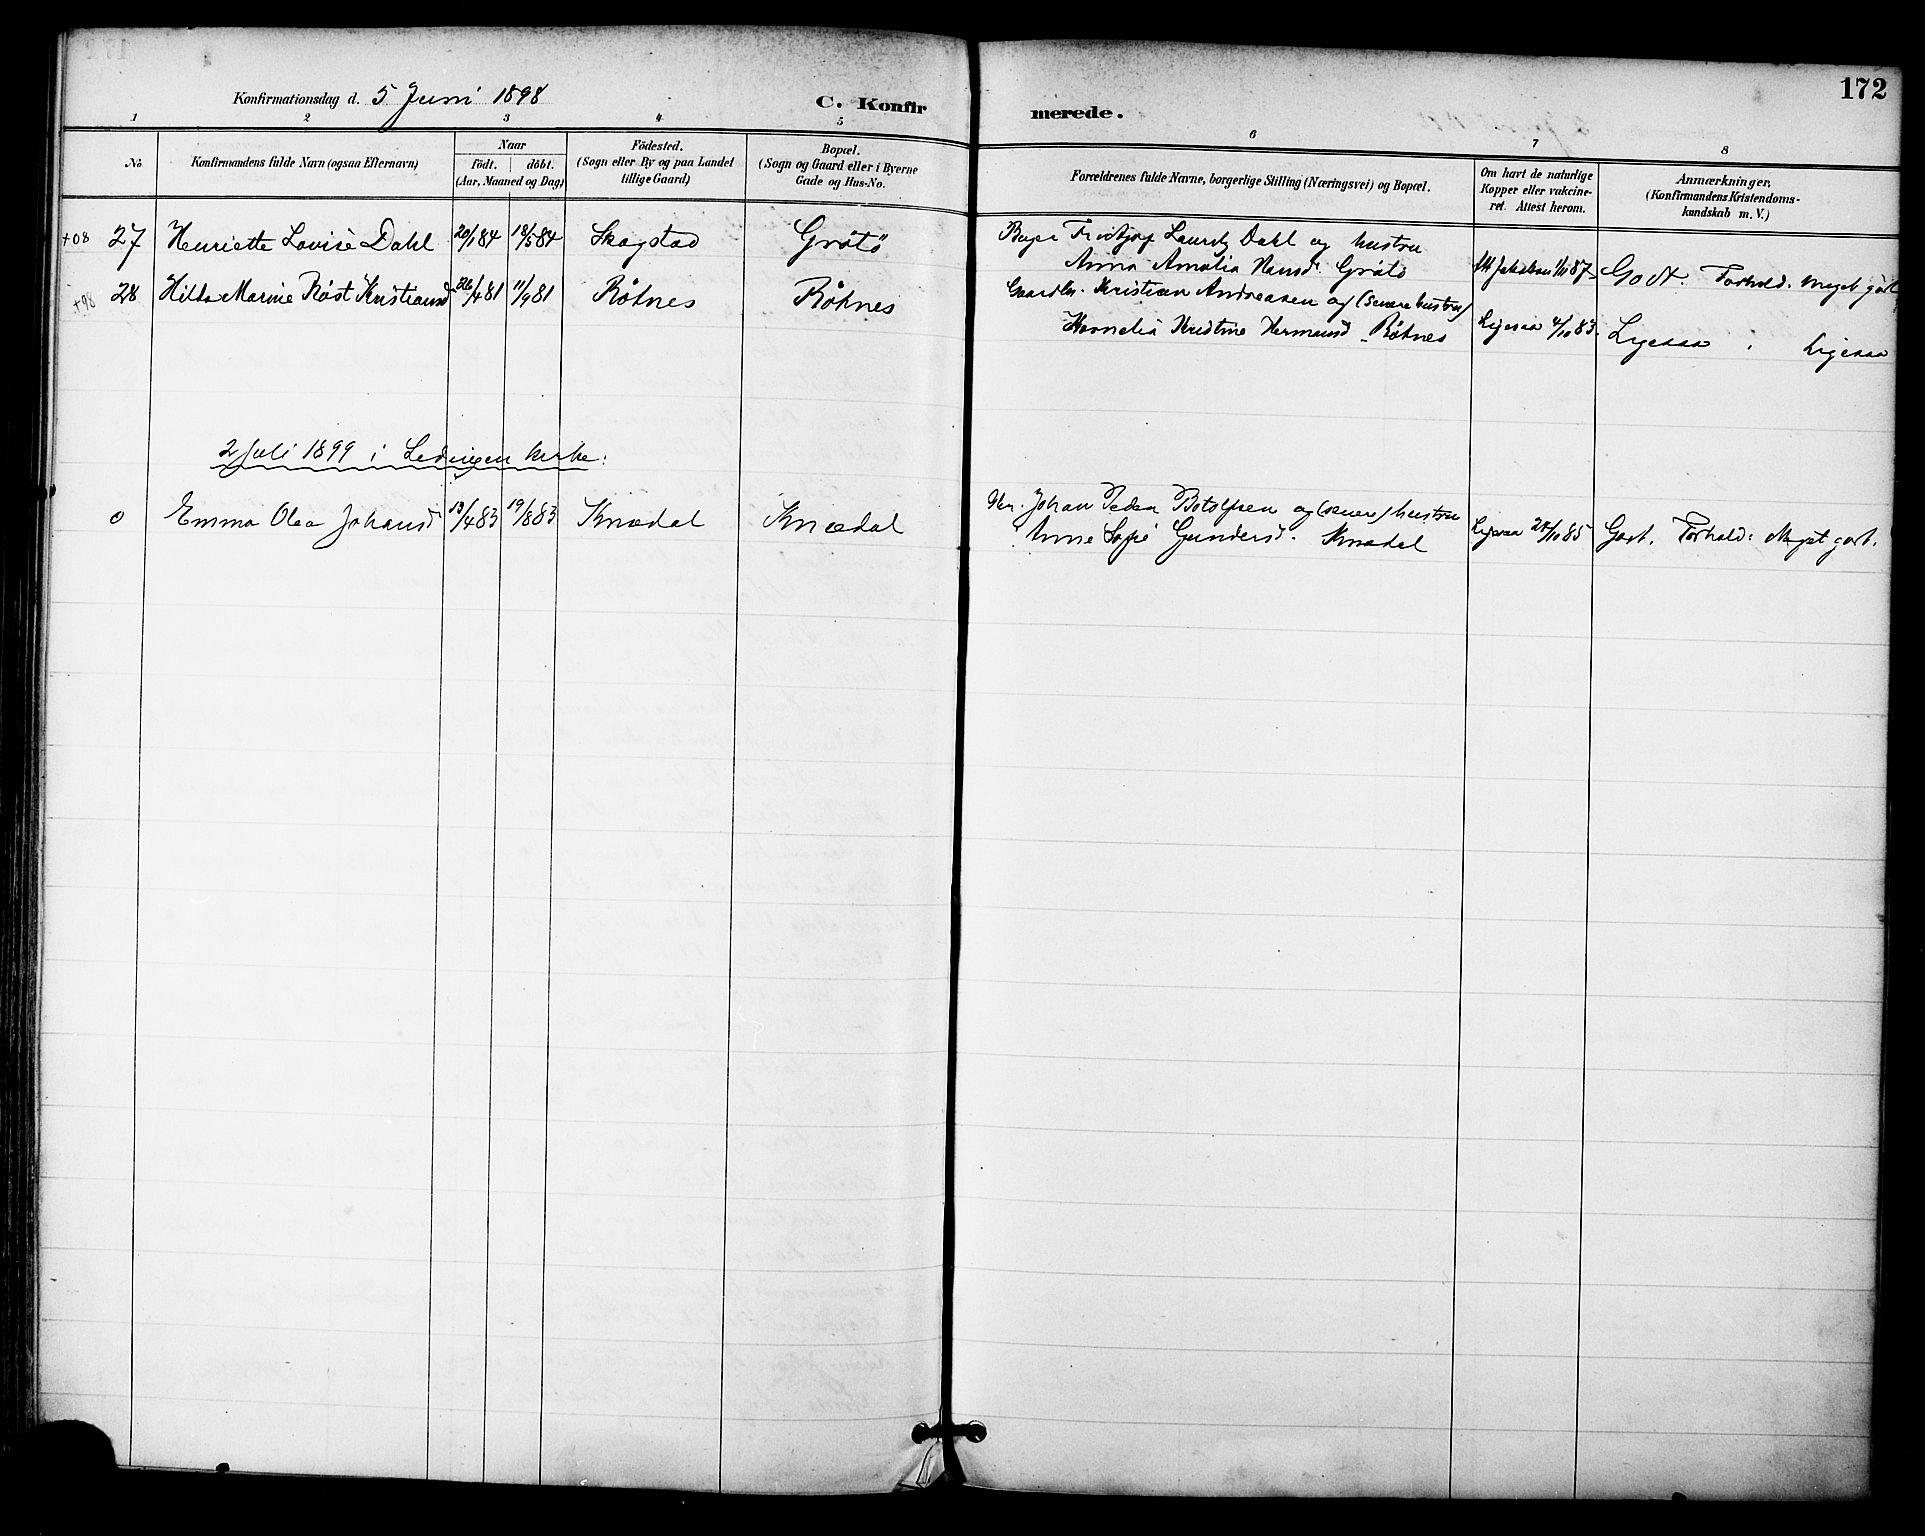 172
Konfirmationsdag d. 5 Juni 1898
C. Konfirmerede.
1 2 3 4 5 6 7 8
No
Konfirmandens fulde Navn (ogsaa Efternavn)
Naar
födt. döbt.
(Aar, Maaned og Dag)
Födested.
(Sogn eller By og paa Landet
tillige Gaard)
Bopæl.
(Sogn og Gaard eller i Byerne
Gade og Hus-No.
Forældrenes fulde Navne, borgerlige Stilling (Næringsvei) og Bopæl.
Om havt de naturlige
Kopper eller vakcine-
ret. Attest herom.
Anmærkninger,
(Konfirmandens Kristendoms-
kundskab m. V.)
+08 27 Henriette Lovise Dahl 20/1 84 18/5 84 Skagstad Grötö Fridtjof Lauritz Dahl og hustru
Anna Amalia Hansd. Grötö Jakobsen 1/11 87 Godt. Forhold: meget godt
+98 28 Hilda Marine Röst Kristiansd 26/4 81 11/9 81 Röknes Röknes Gaardbr. Kristian Andreasen og (senere hustru)
Kornelia Kristine Hermansd. Röknes Ligesaa 4/10 83. Ligesaa : Ligesaa
2 Juli 1899 i Ledingen kirke:
0 Emma Olea Johansd 13/4 83 19/8 83 Knædal Knædal Johan Peder Botolfsen og (senere) hustru
Anne Sofie Gundersd. Knædal Ligesaa 28/10 85 Godt. Forhold: Meget godt.